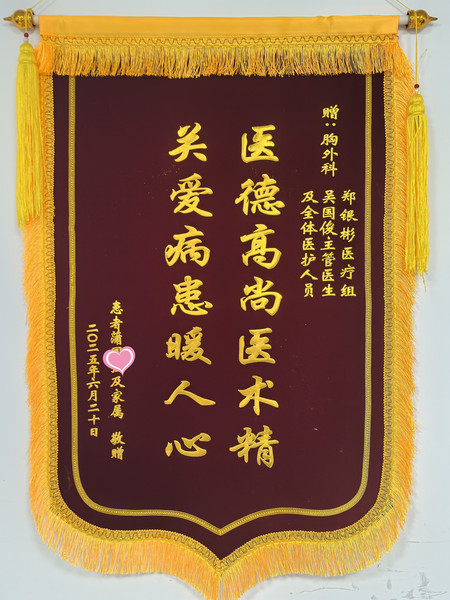 赠：胸外科
郑银彬医疗组
吴国俊主管医生
及全体医护人员
医德高尚医术精
关爱病患暖人心
患者蒲及家属 敬赠
二〇二五年六月二十日